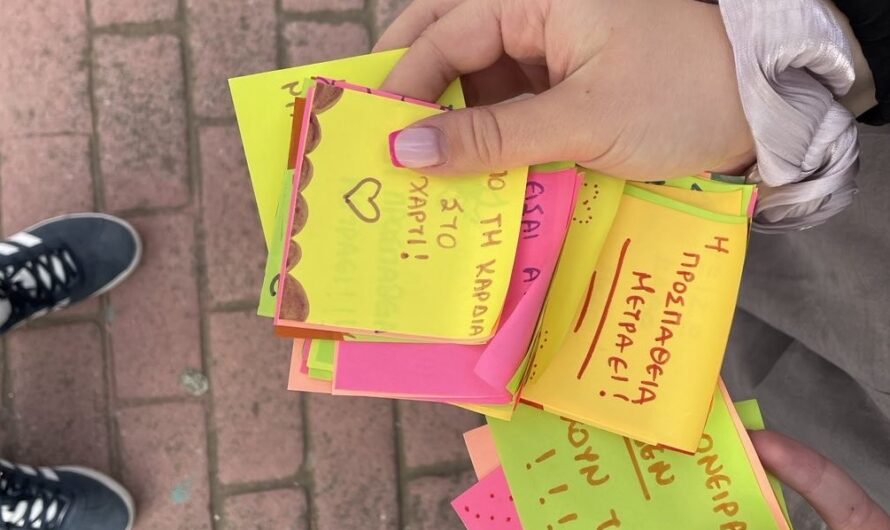 ΤΗ ΚΑΡΔΙΑ
ΣΤΟ
ΧΑΡΤΙ!
ΕΙΣΑΙ
Η
ΠΡΟΣΠΑΘΕΙΑ
ΜΕΤΡΑΕΙ!
ΟΝΕΙΡΑ
!!!